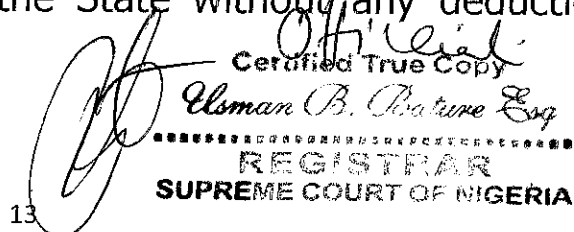 the State without any deducti
Official
Certified True Copy
Usman B. Bature Esq
REGISTRAR
SUPREME COURT OF NIGERIA
13